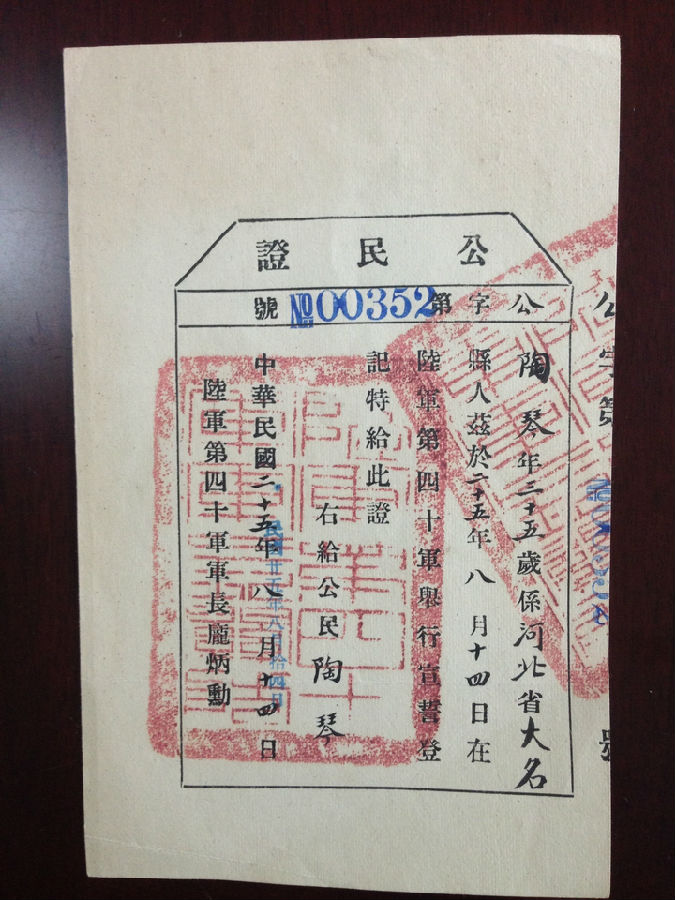 公民證
公字第№00352號
陶琴年二十五歲係河北省大名
縣人茲於二十五年八月十四日在
陸軍第四十軍舉行宣誓登
記特給此證
右給公民陶琴
中華民國二十五年八月十四日
民國廿五年八月拾四日
陸軍第四十軍軍長龐炳勳
公字第
號